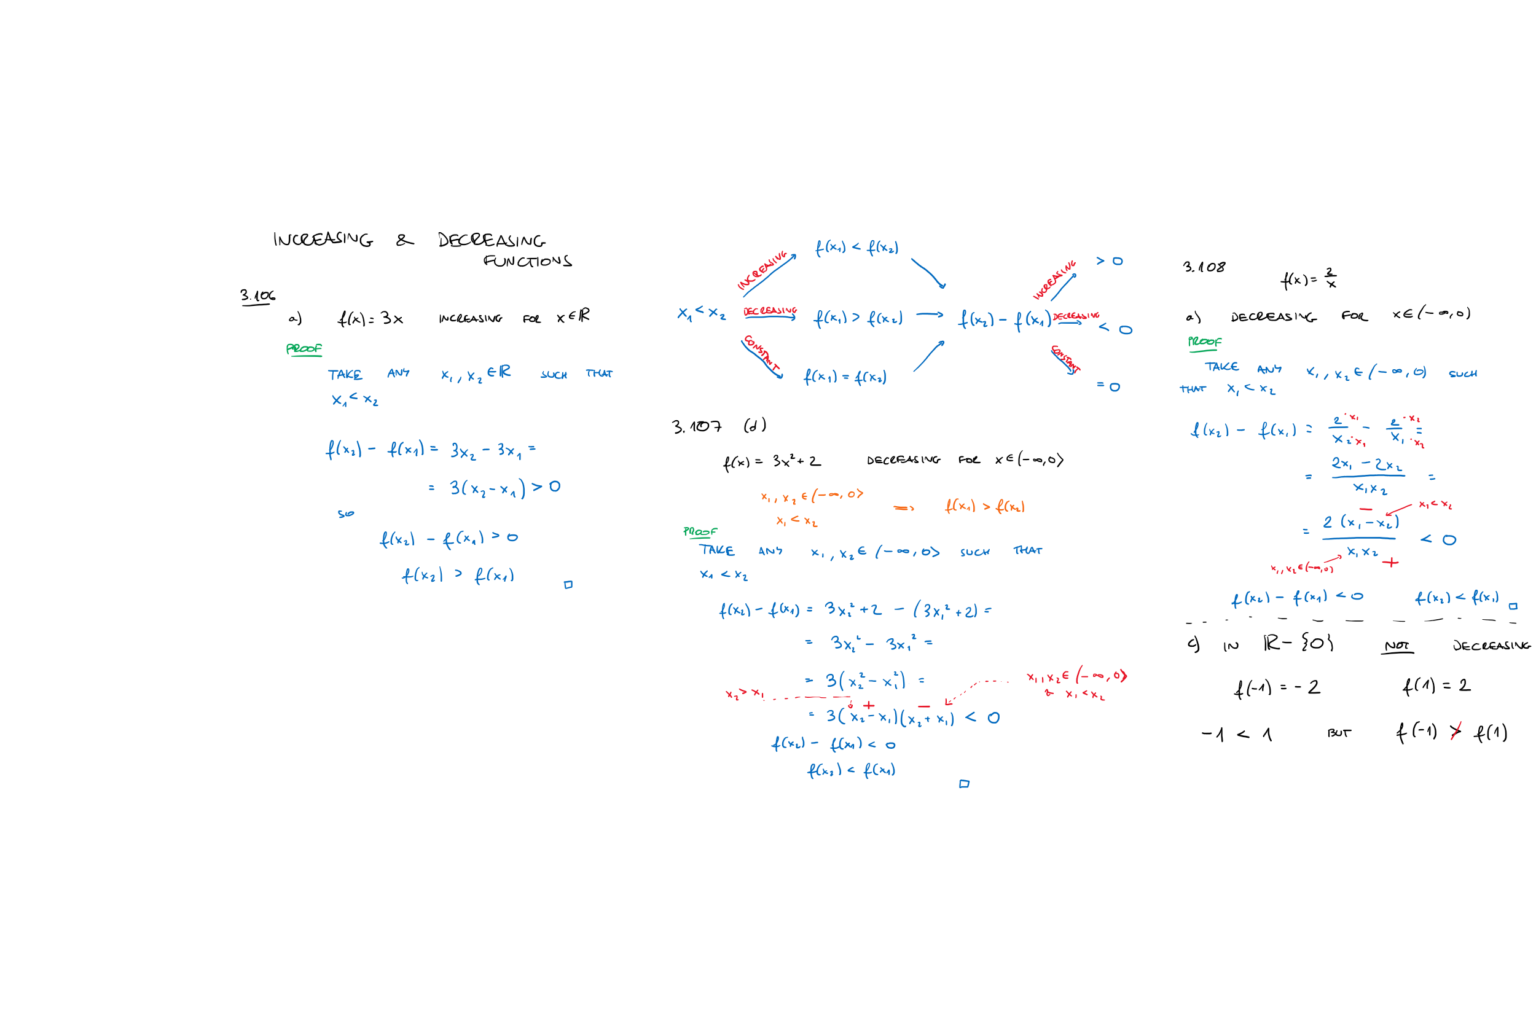 INCREASING & DECREASING
FUNCTIONS
3.106
a) f(x) = 3x INCREASING FOR x∈ℝ
PROOF
TAKE ANY x₁, x₂ ∈ ℝ SUCH THAT
x₁ < x₂
f(x₂) - f(x₁) = 3x₂ - 3x₁ =
= 3(x₂-x₁) > 0
so
f(x₂) - f(x₁) > 0
f(x₂) > f(x₁) □
x₁ < x₂
INCREASING f(x₁) < f(x₂)
DECREASING f(x₁) > f(x₂)
CONSTANT f(x₁) = f(x₂)
f(x₂) - f(x₁)
INCREASING > 0
DECREASING < 0
CONSTANT = 0
3.107 (d)
f(x) = 3x² + 2 DECREASING FOR x∈(-∞,0⟩
x₁, x₂ ∈ (-∞, 0⟩
x₁ < x₂
⟹ f(x₁) > f(x₂)
PROOF
TAKE ANY x₁, x₂ ∈ (-∞, 0⟩ SUCH THAT
x₁ < x₂
f(x₂) - f(x₁) = 3x₂² + 2 - (3x₁² + 2) =
= 3x₂² - 3x₁² =
= 3(x₂² - x₁²) =
x₂ > x₁
x₁, x₂ ∈ (-∞, 0⟩
& x₁ < x₂
+ -
= 3(x₂-x₁)(x₂+x₁) < 0
f(x₂) - f(x₁) < 0
f(x₂) < f(x₁)
□
3.108
f(x) = 2/x
a) DECREASING FOR x∈(-∞,0)
PROOF
TAKE ANY x₁, x₂ ∈ (-∞, 0) SUCH
THAT x₁ < x₂
f(x₂) - f(x₁) = 2·x₁/x₂·x₁ - 2·x₂/x₁·x₂ =
= 2x₁ - 2x₂/x₁x₂ =
x₁ < x₂
-
= 2(x₁-x₂)/x₁x₂ < 0
x₁, x₂ ∈ (-∞, 0) +
f(x₂) - f(x₁) < 0 f(x₂) < f(x₁) □
c) IN ℝ-{0} NOT DECREASING
f(-1) = -2 f(1) = 2
-1 < 1 BUT f(-1) ≯ f(1)